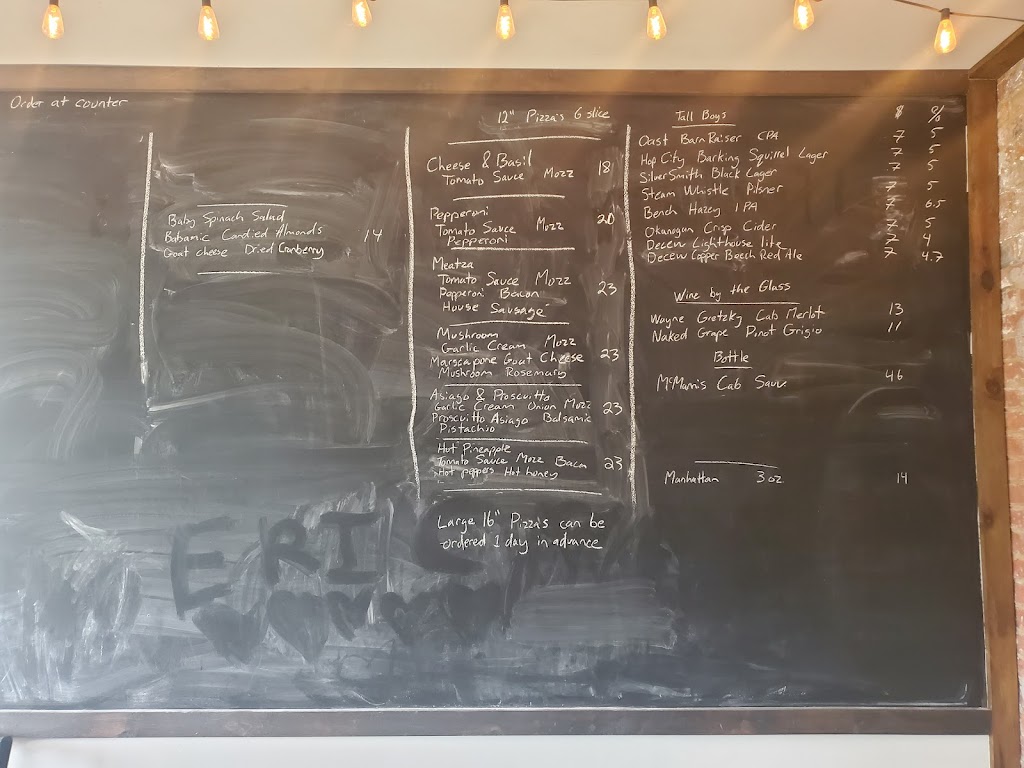 Order at counter
Baby Spinach Salad
Balsamic Candied Almonds 14
Goat cheese Dried Cranberry
12" Pizza's 6 slice
Cheese & Basil
Tomato Sauce Mozz 18
Pepperoni 20
Tomato Sauce Mozz
Pepperoni
Meatza
Tomato Sauce Mozz
Pepperoni Bacon 23
House Sausage
Mushroom
Garlic Cream Mozz
Marscapone Goat Cheese 23
Mushroom Rosemary
Asiago & Proscuitto
Garlic Cream Onion Mozz 23
Proscuitto Asiago Balsamic
Pistachio
Hot Pineapple
Tomato Sauce Mozz Bacon 23
Hot peppers Hot honey
Large 16" Pizza's can be
ordered 1 day in advance
Tall Boys $ %
Oast Barn Raiser CPA 7 5
Hop City Barking Squirrel Lager 7 5
SilverSmith Black Lager 7 5
Steam Whistle Pilsner 7 5
Bench Hazey IPA 7 6.5
Okanogan Crisp Cider 7 5
Decew Lighthouse lite 7 4
Decew Copper Beech Red Ale 7 4.7
Wine by the Glass
Wayne Gretzky Cab Merlot 13
Naked Grape Pinot Grigio 11
Bottle
McManis Cab Sauv 46
Manhattan 3oz 14
ERIC